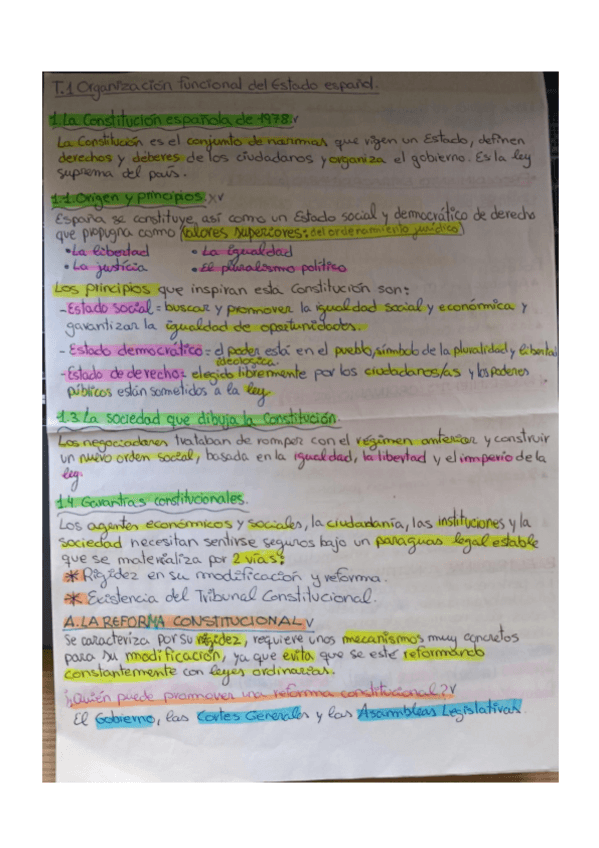 T.1 Organización funcional del Estado español.
1. La Constitución española de 1978.
La Constitución es el conjunto de normas que rigen un Estado, definen
derechos y deberes de los ciudadanos y organiza el gobierno. Es la ley
suprema del país.
1.1. Origen y principios.
España se constituye, así como un Estado social y democrático de derecho
que propugna como valores superiores: del ordenamiento jurídico
• La libertad • La igualdad
• La justicia • El pluralismo político
Los principios que inspiran esta Constitución son:
- Estado social = buscar y promover la igualdad social y económica y
garantizar la igualdad de oportunidades.
- Estado democrático = el poder está en el pueblo, símbolo de la pluralidad y libertad
ideológica.
- Estado de derecho = elegido libremente por los ciudadanos/as y los poderes
públicos están sometidos a la ley.
1.3 La sociedad que dibuja la Constitución.
Los negociadores trataban de romper con el régimen anterior y construir
un nuevo orden social, basada en la igualdad, la libertad y el imperio de la
ley.
1.4. Garantías constitucionales.
Los agentes económicos y sociales, la ciudadanía, las instituciones y la
sociedad necesitan sentirse seguros bajo un paraguas legal estable
que se materializa por 2 vías:
* Rigidez en su modificación y reforma.
* Existencia del Tribunal Constitucional.
A. LA REFORMA CONSTITUCIONAL
Se caracteriza por su rigidez, requiere unos mecanismos muy concretos
para su modificación, ya que evita que se esté reformando
constantemente con leyes ordinarias.
¿Quién puede promover una reforma constitucional?
El Gobierno, las Cortes Generales y las Asambleas Legislativas.